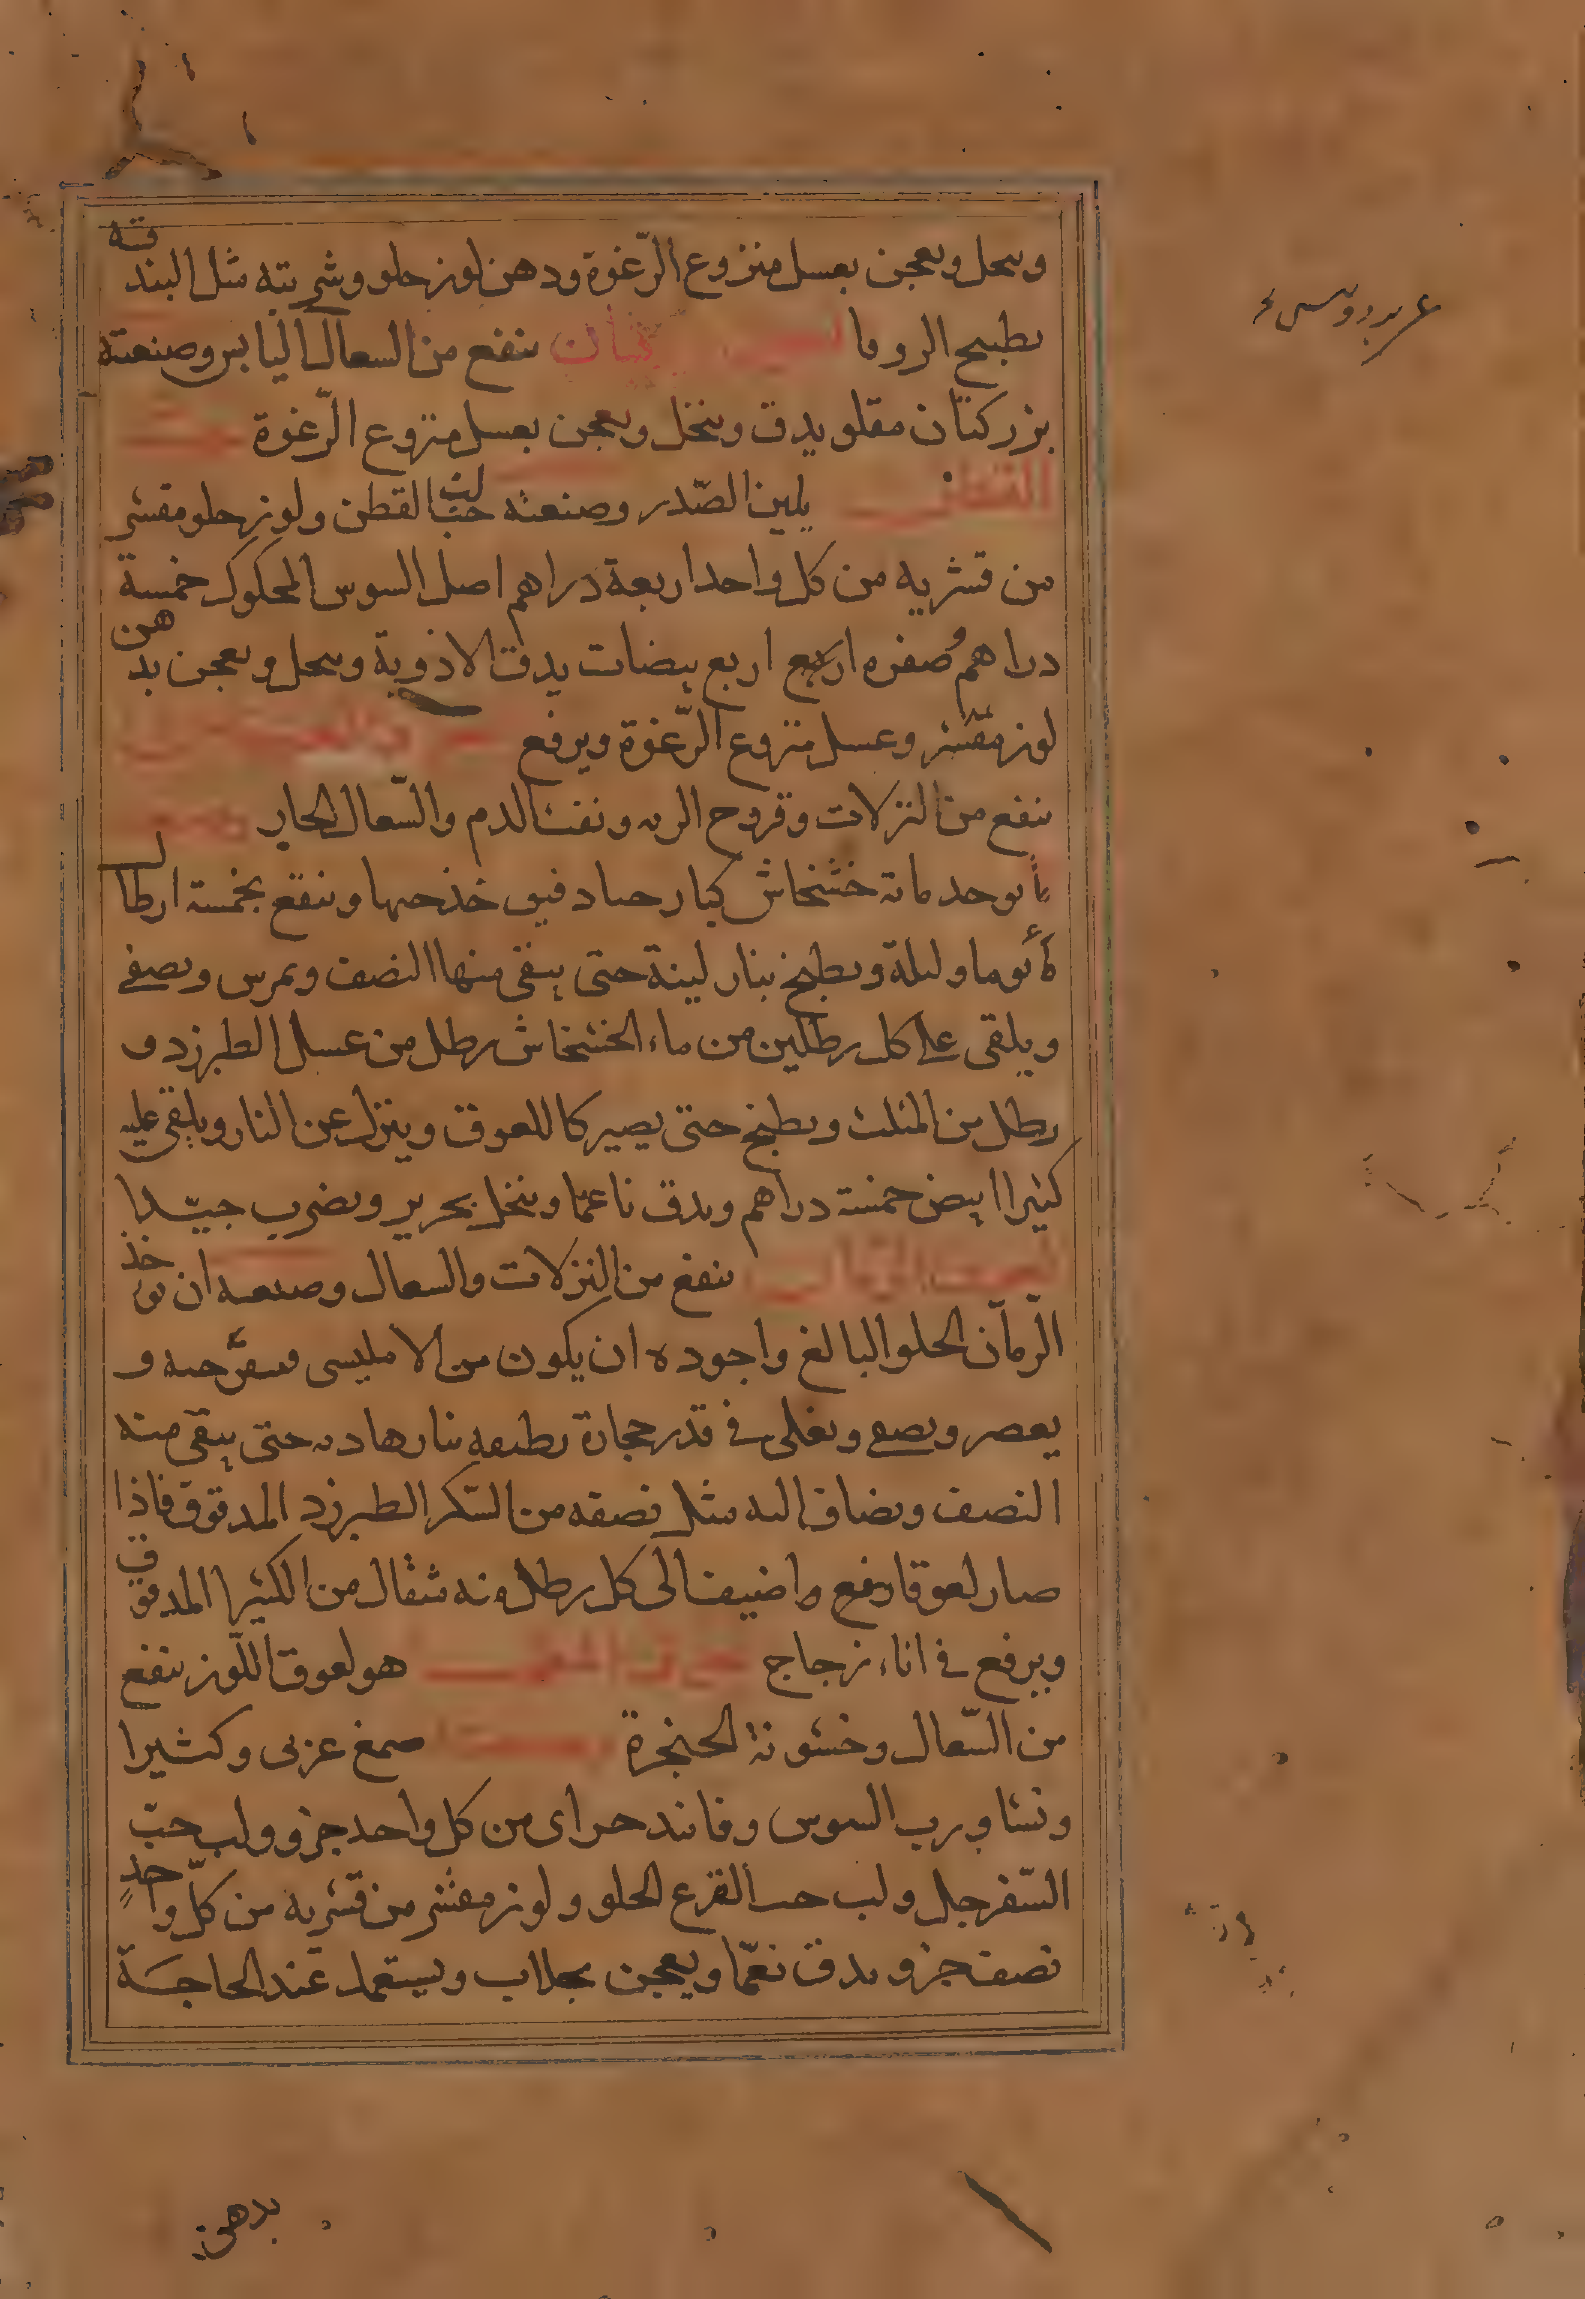 وينخل ويعجن بعسل منزوع الرّغوة ودهن لوز حلو وشربته مثل البندقه
بطبيخ الزوفا كتان ينفع من السعال اليابس وصنعته
بزر كتان مقلو يدق وينخل ويعجن بعسل منزوع الرّغوة
القطن يلين الصّدر وصنعته لب حب القطن ولوز حلو مقشر
من قشريه من كل واحد اربعة دراهم اصل السوس المحكوك خمسة
دراهم وصفره اربع بيضات يدق الادوية وينخل ويعجن بدهن
لوز مقشر وعسل منزوع الرّغوة ويرفع
ينفع من النزلات وقروح الريه ونفث الدم والسّعال الحار
يوخد ماته خشخاش كبار خذ حبها وينقع بخمسة ارطال
ماء يوما وليلة ويطبخ بنار لينة حتى يبقى منها النصف ويمرس ويصفى
ويلقى على كل رطلين من ماء الخشخاش رطل من عسل الطبرزد و
رطل من المثلث ويطبخ حتى يصير كاللعوق وينزل عن النار ويلقى عليه
كثيرا ابيض خمسة دراهم ويدق ناعمّا وينخل بحرير ويضرب جيّدا
لعوق الرمان ينفع من النزلات والسعال وصنعه ان يوخذ
الرّمان الحلو البالغ واجوده ان يكون من الامليسى حبه و
يعصر ويصفى ويغلى فى قدر حجارة نظيفه بنار هاديه حتى يبقى منه
النصف ويضاف اليه مثل نصفه من السّكر الطبرزد المدقوق فاذا
صار لعوقا رفع واضيف الى كل رطل منه مثقال من الكثيرا المدقوق
ويرفع فى اناء زجاج هو لعوق اللّوز ينفع
من السّعال وخشونة الحنجرة صمغ عربى وكثيرا
ونشا ورب السوس وفانيد من كل واحد جزو ولب حبّ
السّفرجل ولب حب القرع الحلو ولوز مقشر من قشريه من كلّ واحدٍ
نصف جزو يدق نعمّا ويعجن بجلاب ويستعمل عند الحاجة
بدهن